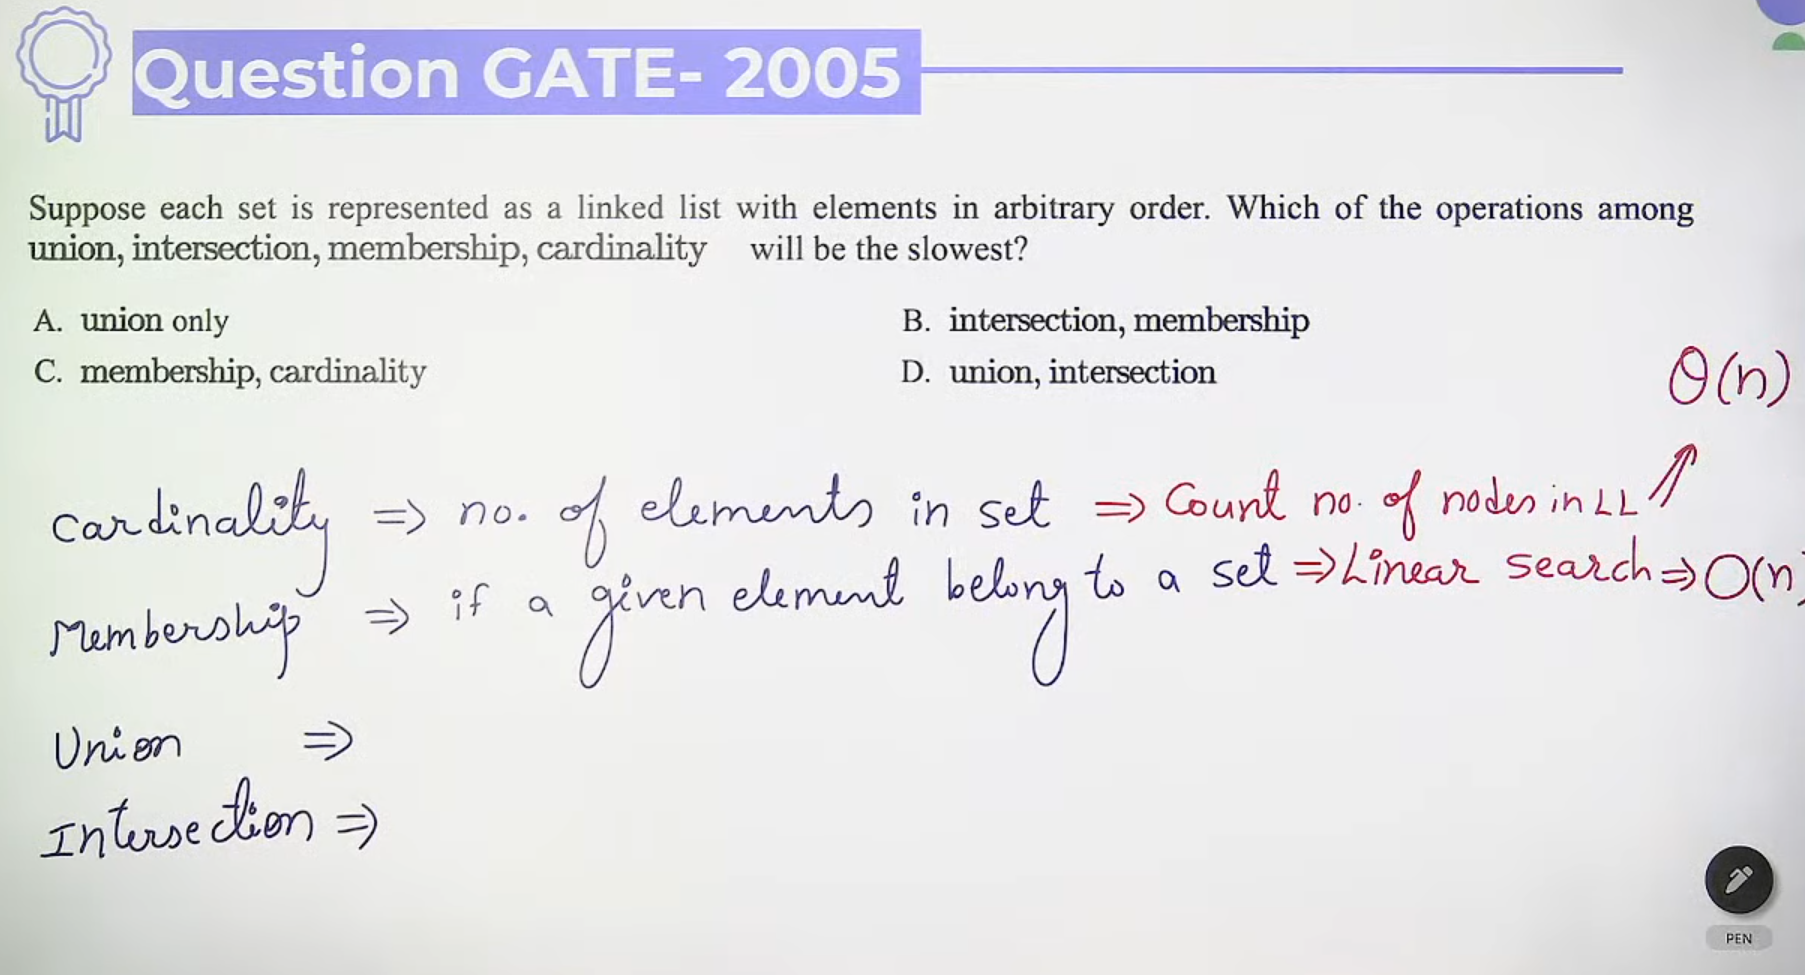 Question GATE- 2005
Suppose each set is represented as a linked list with elements in arbitrary order. Which of the operations among
union, intersection, membership, cardinality will be the slowest?
A. union only
B. intersection, membership
C. membership, cardinality
D. union, intersection
θ(n)
Cardinality ⇒ no. of elements in set ⇒ Count no. of nodes in LL ⇑
Membership ⇒ if a given element belong to a set ⇒ Linear search ⇒ O(n)
Union ⇒
Intersection ⇒
PEN